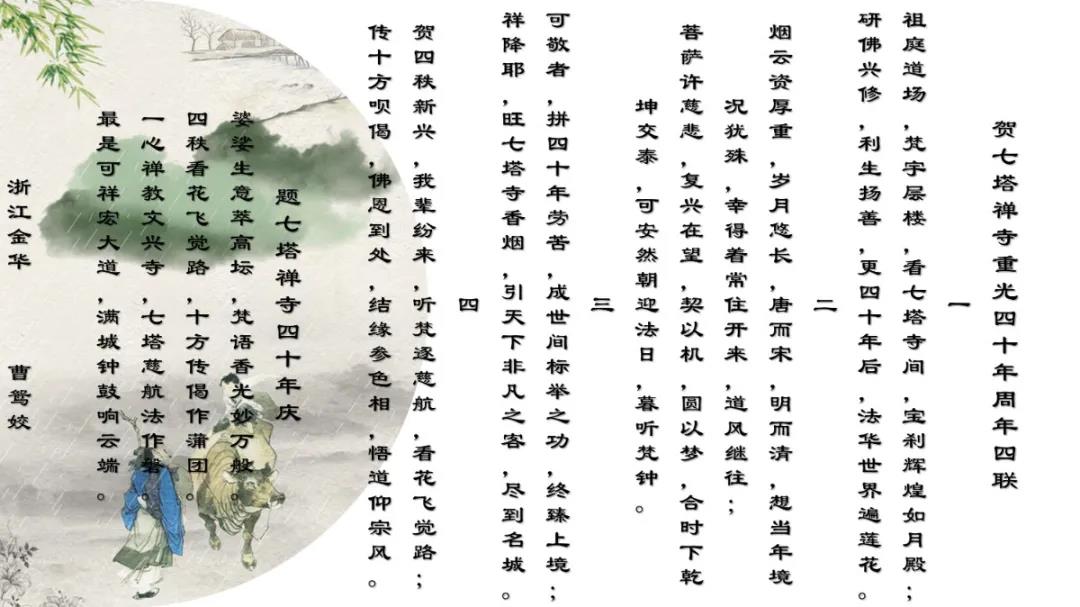 贺七塔禅寺重光四十年周年四联
一
祖庭道场,梵宇层楼,看七塔寺间,宝刹辉煌如月殿;
研佛兴修,利生扬善,更四十年后,法华世界遍莲花。
二
烟云资厚重,岁月悠长,唐而宋,明而清,想当年境
况犹殊,幸得着常住开来,道风继往;
菩萨许慈悲,复兴在望,契以机,圆以梦,合时下乾
坤交泰,可安然朝迎法日,暮听梵钟。
三
可敬者,拼四十年劳苦,成世间标举之功,终臻上境;
祥降耶,旺七塔寺香烟,引天下非凡之客,尽到名城。
四
贺四秩新兴,我辈纷来,听梵逐慈航,看花飞觉路;
传十方呗偈,佛恩到处,结缘参色相,悟道仰宗风。
题七塔禅寺四十年庆
婆娑生意萃高坛,梵语香光妙万般。
四秩看花飞觉路,十方传偈作蒲团。
一心禅教文兴寺,七塔慈航法作磐。
最是可祥宏大道,满城钟鼓响云端。
浙江金华 曹鸳姣